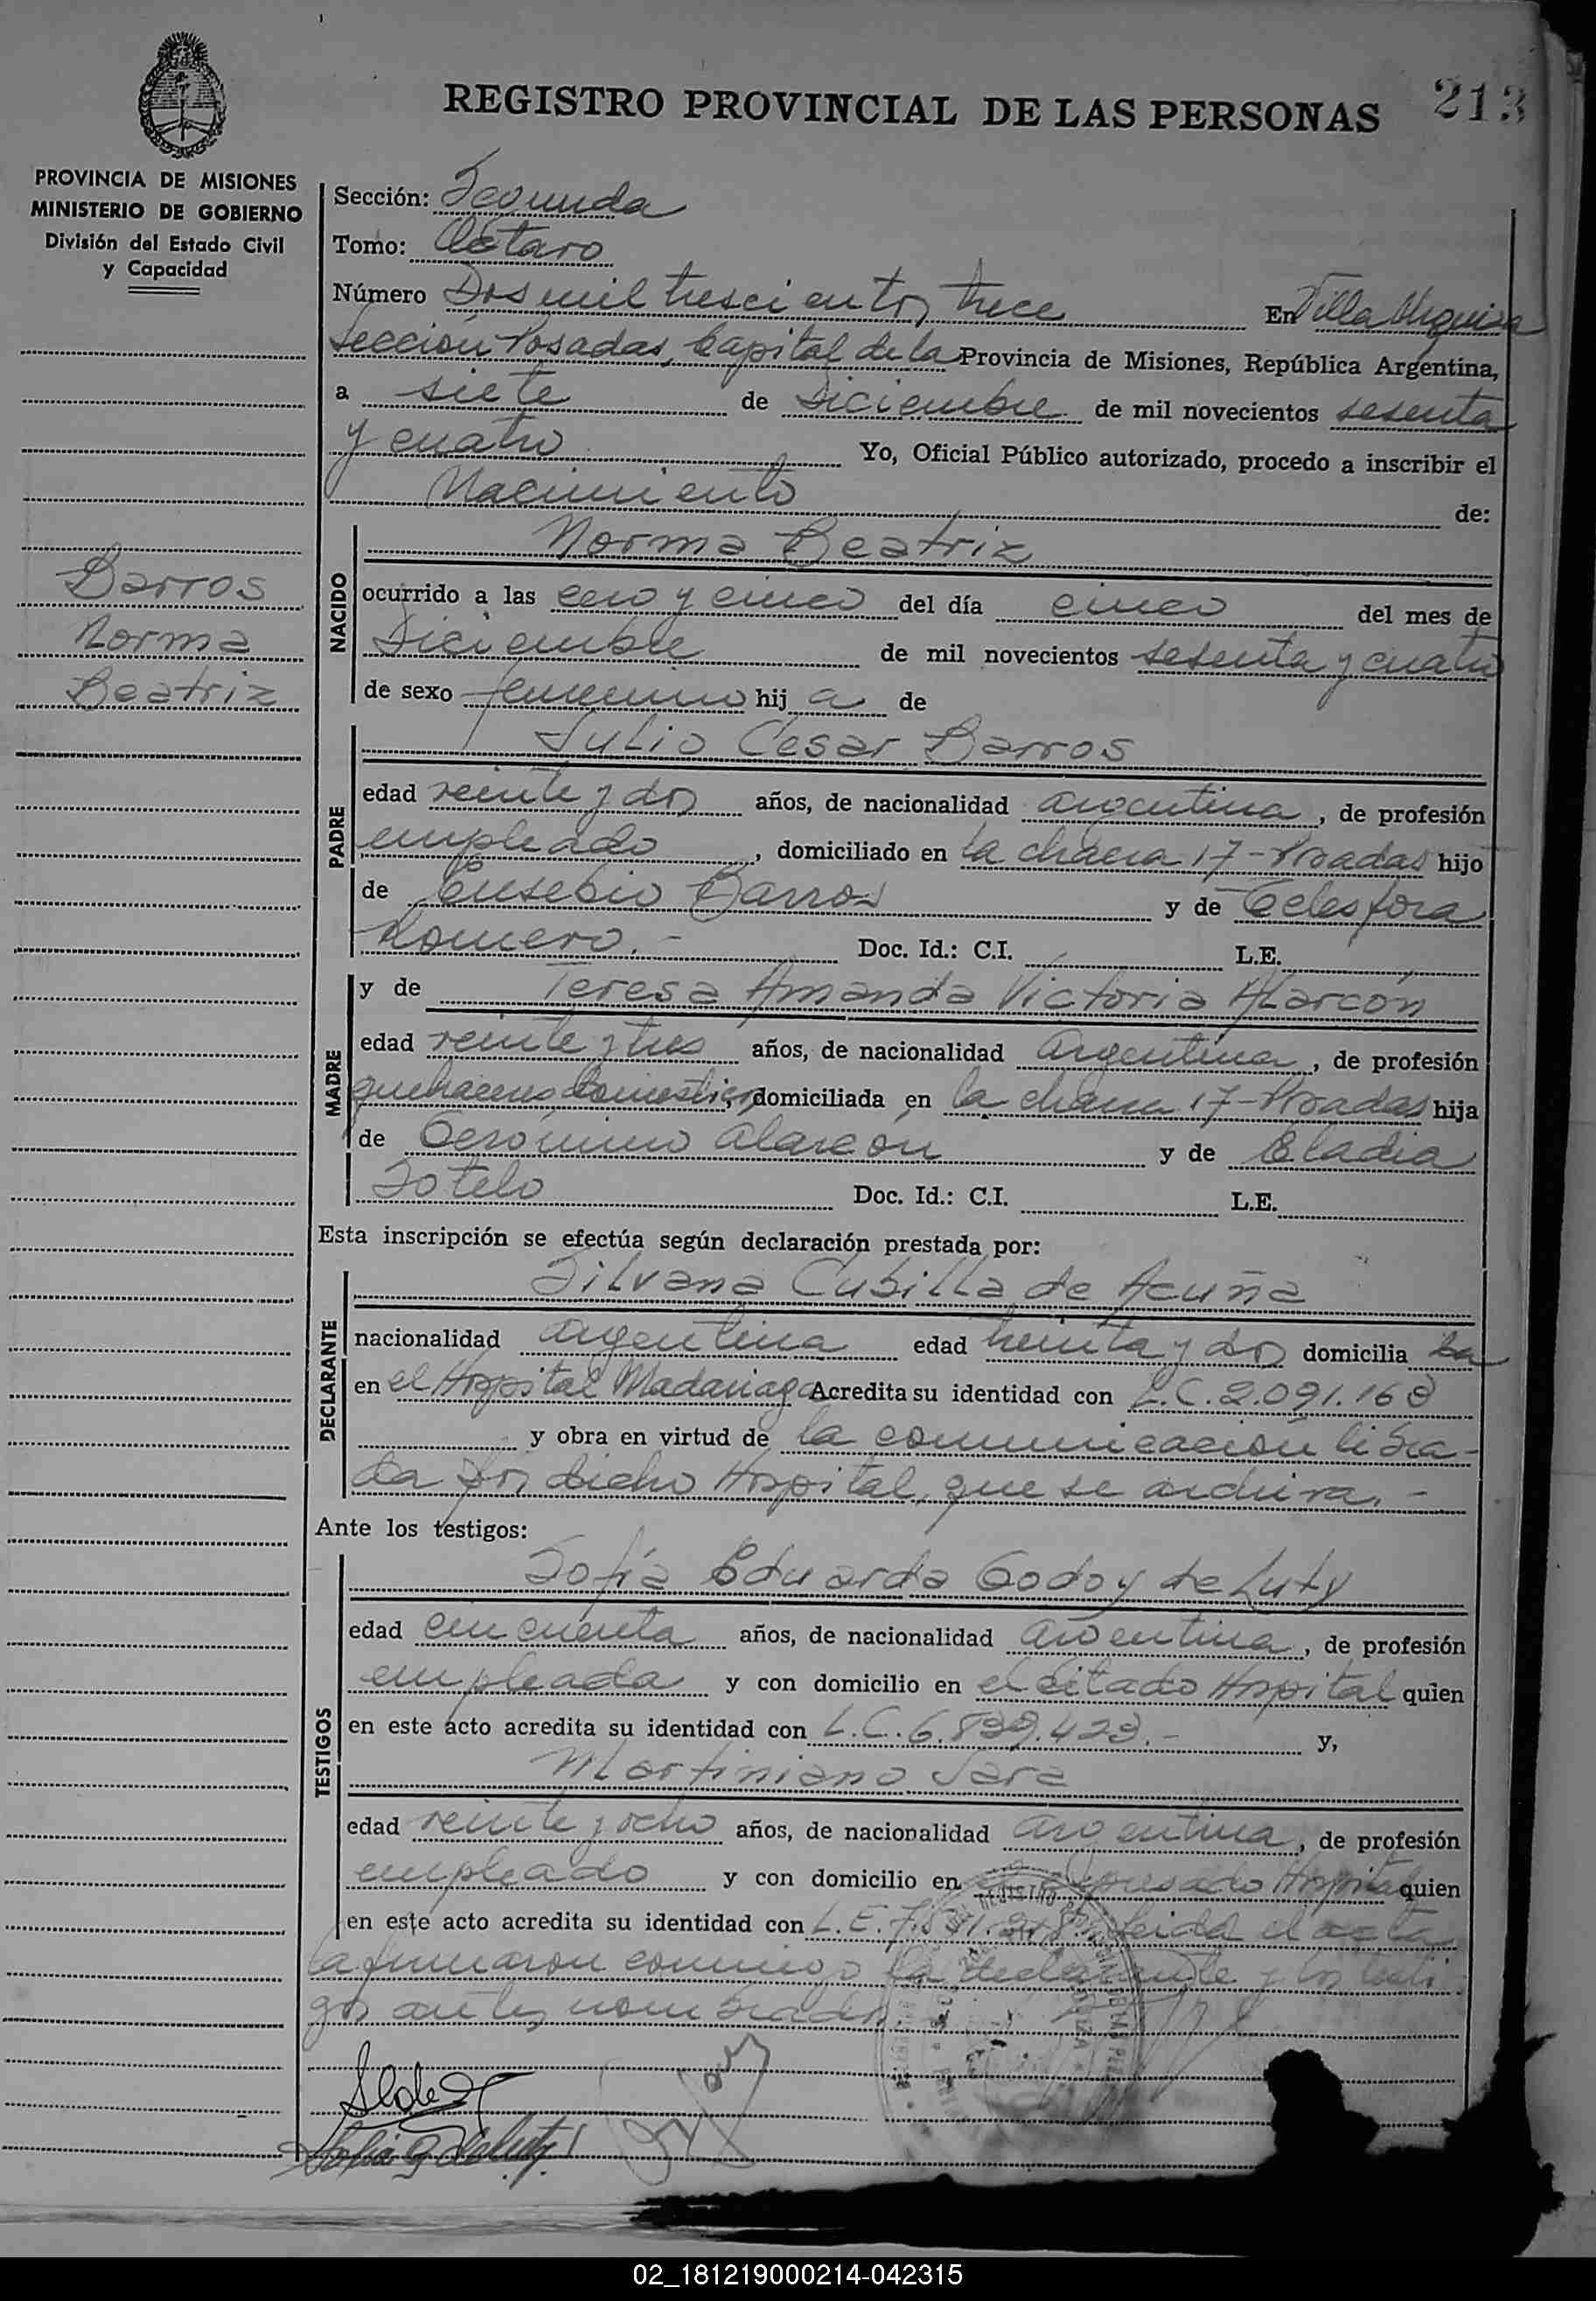 REGISTRO PROVINCIAL DE LAS PERSONAS 213
PROVINCIA DE MISIONES
MINISTERIO DE GOBIERNO
División del Estado Civil
y Capacidad
Sección: Segunda
Tomo: Octavo
Número Dos mil trescientos trece En Villa Urquiza
Sección Posadas, Capital de la Provincia de Misiones, República Argentina,
a siete de Diciembre de mil novecientos sesenta
y cuatro Yo, Oficial Público autorizado, procedo a inscribir el
Nacimiento de:
Barros
Norma
Beatriz
NACIDO
Norma Beatriz
ocurrido a las cero y cinco del día cinco del mes de
Diciembre de mil novecientos sesenta y cuatro
de sexo femenino hij a de
PADRE
Julio Cesar Barros
edad veinte y dos años, de nacionalidad argentina, de profesión
empleado, domiciliado en la chacra 17-Posadas hijo
de Eusebio Barros y de Telesfora
Romero.- Doc. Id.: C.I. L.E.
MADRE
y de Teresa Amanda Victoria Alarcón
edad veinte y tres años, de nacionalidad argentina, de profesión
quehaceres domésticos, domiciliada en la chacra 17-Posadas hija
de Gerónimo Alarcón y de Eladia
Sotelo Doc. Id.: C.I. L.E.
Esta inscripción se efectúa según declaración prestada por:
DECLARANTE
Silvana Cubilla de Acuña
nacionalidad argentina edad treinta y dos domicilia da
en el Hospital Madariaga Acredita su identidad con L.C.2.091.168
y obra en virtud de la comunicación libra-
da por dicho Hospital, que se archiva.-
Ante los testigos:
TESTIGOS
Sofía Eduarda Godoy de Luty
edad cincuenta años, de nacionalidad argentina, de profesión
empleada y con domicilio en el citado Hospital quien
en este acto acredita su identidad con L.C.6.839.423.- y,
Martiniano Jara
edad veinte y ocho años, de nacionalidad argentina, de profesión
empleado y con domicilio en expresado Hospital quien
en este acto acredita su identidad con L.E. Leída el acta
la firmaron conmigo la declarante y los testi
gos antes nombrados.
02_181219000214-042315